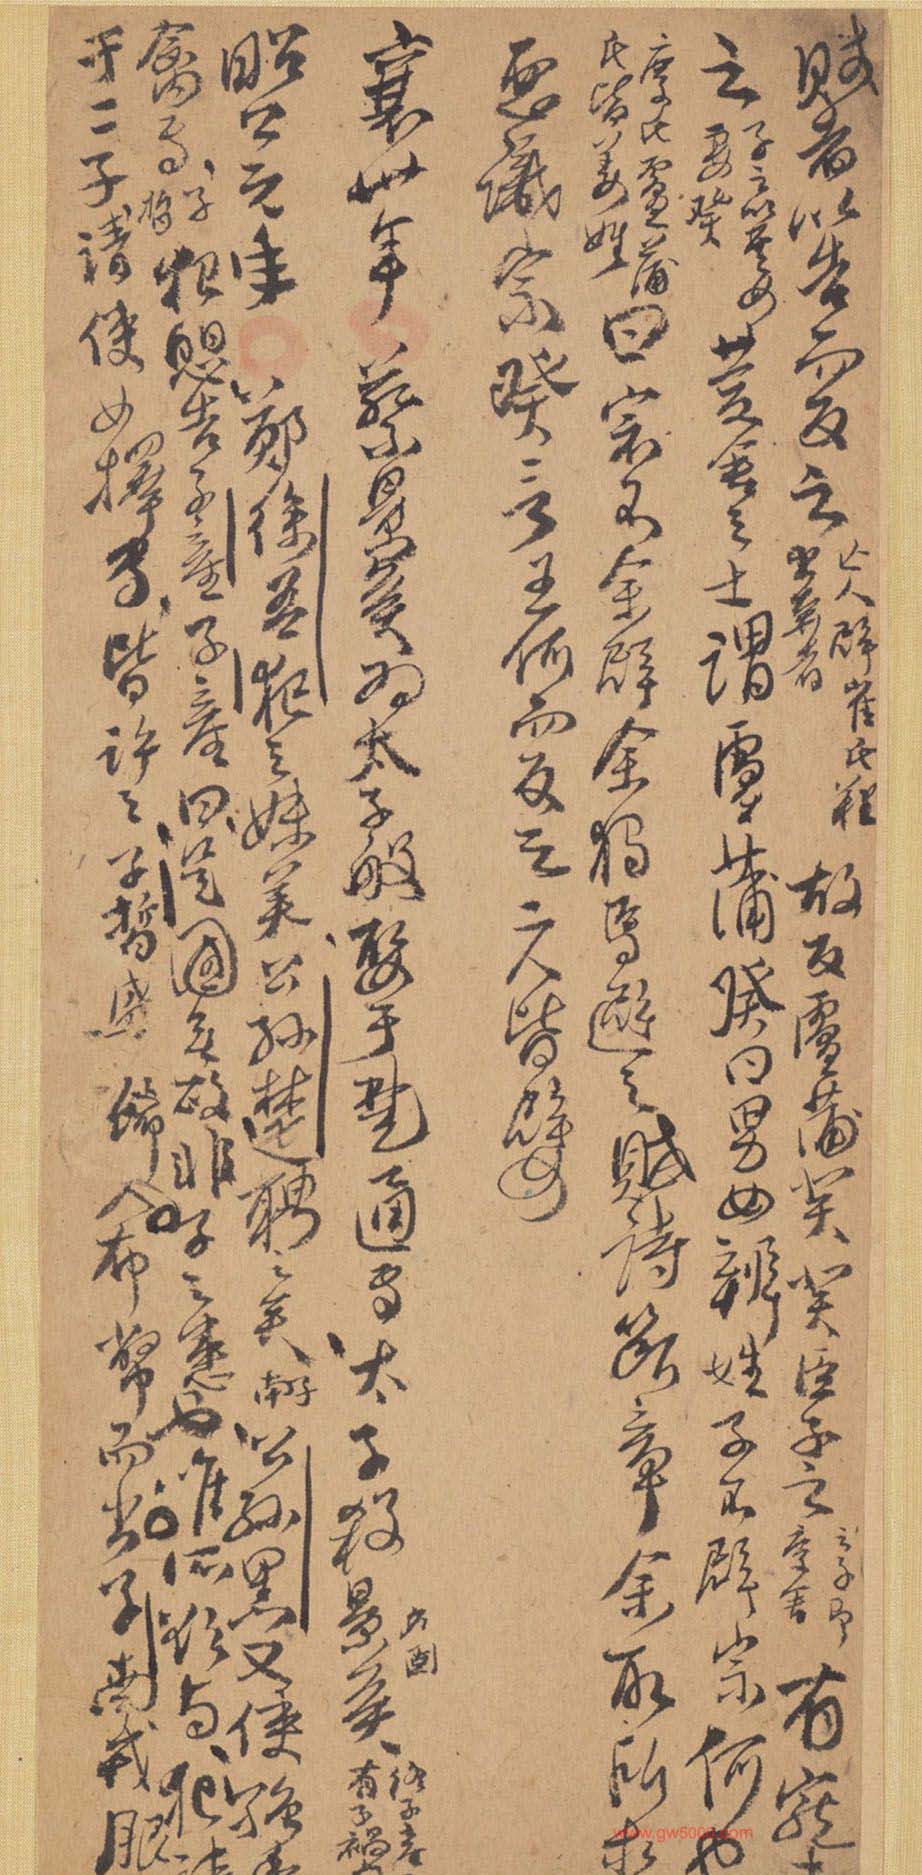 賊者以告而反之亡人辟崔氏難出奔者故反盧蒲癸癸臣子之子之慶舍有寵
之子之以其女妻癸慶舍之士謂盧蒲癸曰男女辨姓子不辟宗何也
慶氏盧蒲氏皆姜姓曰宗不余辟余獨焉避之賦詩斷章余取所求
惡識宗癸言王何而反之二人皆嬖
襄卅年 蔡景侯為太子般娶于楚通焉太子殺景侯
昭公元年 鄭徐吾犯之妹美公孫楚聘之矣子南公孫黑又使強委
禽焉犯懼告子產子產曰是國無政非子之患也唯所欲與犯請
于二子請使女擇焉皆許之子晳盛飾入布幣而出子南戎服
www.gw500